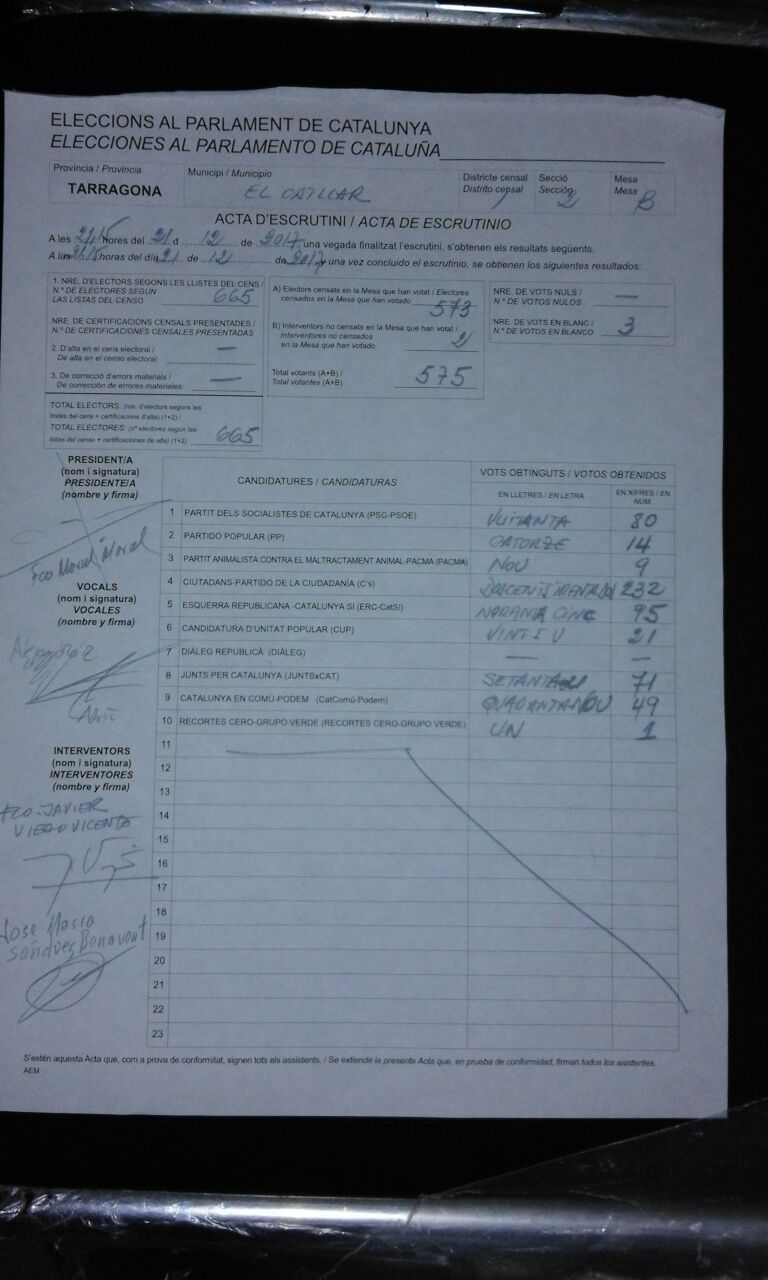 ELECCIONS AL PARLAMENT DE CATALUNYA
ELECCIONES AL PARLAMENTO DE CATALUÑA
Província / Provincia
TARRAGONA
Municipi / Municipio
EL CATLLAR
Districte censal
Distrito censal
1
Secció
Sección
2
Mesa
Mesa
B
ACTA D'ESCRUTINI / ACTA DE ESCRUTINIO
A les 21,15 hores del 21 d 12 de 2017 una vegada finalitzat l'escrutini, s'obtenen els resultats següents:
A las 21,15 horas del día 21 de 12 de 2017 y una vez concluido el escrutinio, se obtienen los siguientes resultados:
1. NRE. D'ELECTORS SEGONS LES LLISTES DEL CENS /
N.º DE ELECTORES SEGÚN
LAS LISTAS DEL CENSO 665
NRE. DE CERTIFICACIONS CENSALS PRESENTADES /
N.º DE CERTIFICACIONES CENSALES PRESENTADAS
2. D'alta en el cens electoral /
De alta en el censo electoral: —
3. De correcció d'errors materials /
De corrección de errores materiales: —
TOTAL ELECTORS: (nre. d'electors segons les
llistes del cens + certificacions d'alta) (1+2) /
TOTAL ELECTORES: (nº electores según las
listas del censo + certificaciones de alta) (1+2) 665
A) Electors censats en la Mesa que han votat / Electores
censados en la Mesa que han votado 573
B) Interventors no censats en la Mesa que han votat /
Interventores no censados
en la Mesa que han votado 2
Total votants (A+B) /
Total votantes (A+B) 575
NRE. DE VOTS NULS /
N.º DE VOTOS NULOS —
NRE. DE VOTS EN BLANC /
N.º DE VOTOS EN BLANCO 3
PRESIDENT/A
(nom i signatura)
PRESIDENTE/A
(nombre y firma)
Fco Moral Moral
VOCALS
(nom i signatura)
VOCALES
(nombre y firma)
INTERVENTORS
(nom i signatura)
INTERVENTORES
(nombre y firma)
FCO. JAVIER
VICENTE
Jose Maria
Benavent
CANDIDATURES / CANDIDATURAS
VOTS OBTINGUTS / VOTOS OBTENIDOS
EN LLETRES / EN LETRA
EN XIFRES / EN NÚM.
1 PARTIT DELS SOCIALISTES DE CATALUNYA (PSC-PSOE) VUITANTA 80
2 PARTIDO POPULAR (PP) CATORZE 14
3 PARTIT ANIMALISTA CONTRA EL MALTRACTAMENT ANIMAL-PACMA (PACMA) NOU 9
4 CIUTADANS-PARTIDO DE LA CIUDADANÍA (C's) 232
5 ESQUERRA REPUBLICANA -CATALUNYA SÍ (ERC-CatSÍ) NORANTA CINC 95
6 CANDIDATURA D'UNITAT POPULAR (CUP) VINT I U 21
7 DIÀLEG REPUBLICÀ (DIÀLEG) — —
8 JUNTS PER CATALUNYA (JUNTSxCAT) SETANTA U 71
9 CATALUNYA EN COMÚ-PODEM (CatComú-Podem) QUARANTA NOU 49
10 RECORTES CERO-GRUPO VERDE (RECORTES CERO-GRUPO VERDE) UN 1
11
12
13
14
15
16
17
18
19
20
21
22
23
S'estén aquesta Acta que, com a prova de conformitat, signen tots els assistents. / Se extiende la presente Acta que, en prueba de conformidad, firman todos los asistentes.
AEM